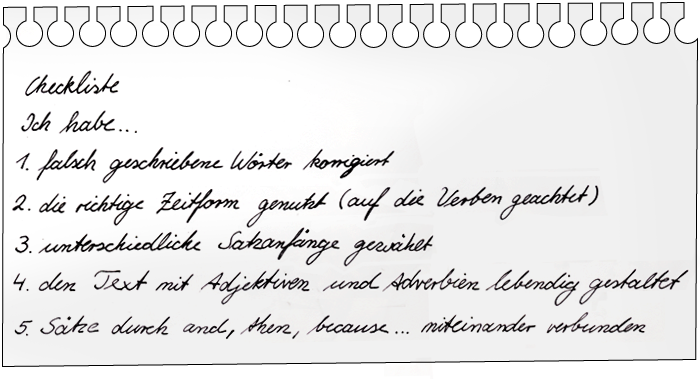 Checkliste
Ich habe...
1. falsch geschriebene Wörter korrigiert
2. die richtige Zeitform genutzt (auf die Verben geachtet)
3. unterschiedliche Satzanfänge gewählt
4. den Text mit Adjektiven und Adverbien lebendig gestaltet
5. Sätze durch and, then, because... miteinander verbunden